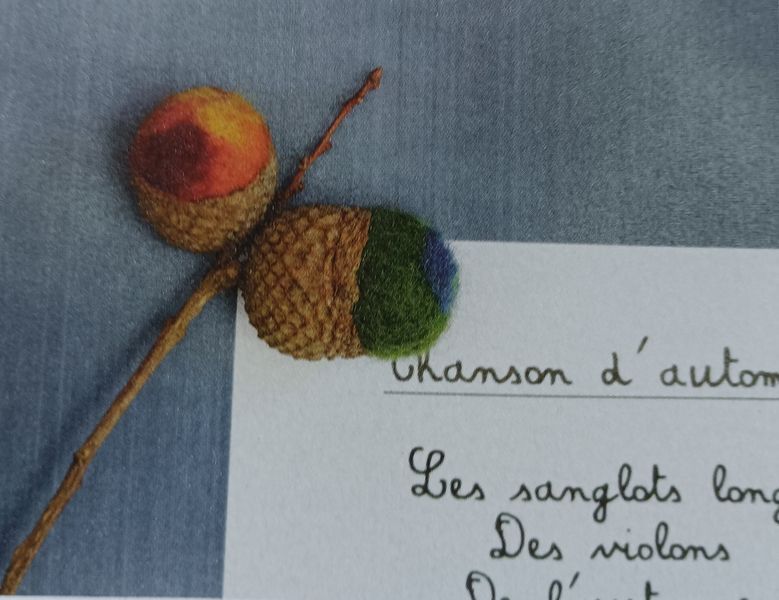 Chanson d'autom
Les sanglots long
Des violons
De l'